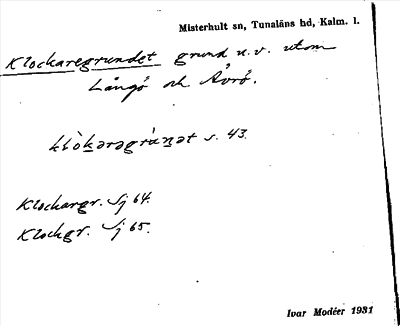 Misterhult sn, Tunaläns hd, Kalm. l.
Klockaregrundet grund u.v. utom
Långö och Ävrö.
s. 43.
Klockargr. Sj 64.
Klockgr. Sj 65.
Ivar Modéer 1931